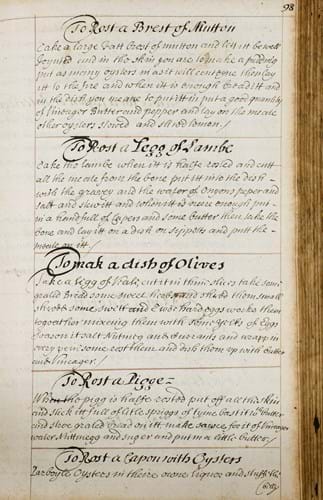 98
To Rost a Brest of Mutton
Take a large Fatt brest of mutton and lett it be well
Joynted and in the skin you are to make a pudding
put as many oysters in as it will containe then lay
it to the fire and when it is enough bread itt and
in the dish you meane to put itt in put a good quantity
of vineager Butter and pepper and lay on the meate
other oysters stewed and shred lemon /
To Rost a Legg of Lambe
Take the lambe when it is halfe rosted and cutt
all the meate from the bone put itt into the dish
with the gravey and the water of Onyons peper and
salt and stew itt and when itt is neere enough put
in a handfull of Capers and some butter then take the
bone and lay itt on a dish on sippitts and putt the
meate on itt /
To mak a dish of Olives
Take a Legg of Veale cut it in thinn slices take some
grated Bread some sweet hearbs and shred them small
shred some suett and 2 or 3 hard eggs worke them
togeather mixeing them with some yelks of Eggs
season it salt Nutmeg and Currants and wrapp in
every peice some rost them and dish them up with butter
and Vineager /
To Rost a Pigge
When the pigg is halfe rosted put off all the skin
and stick itt full of little spriggs of tyme bast it with butter
and shoe grated bread on itt make sauce for it of vineager
water Nuttmegg and suger and putt in a little butter /
To Rost a Capon with Oysters
Parboyle Oysters in theire owne liquor and stuff the